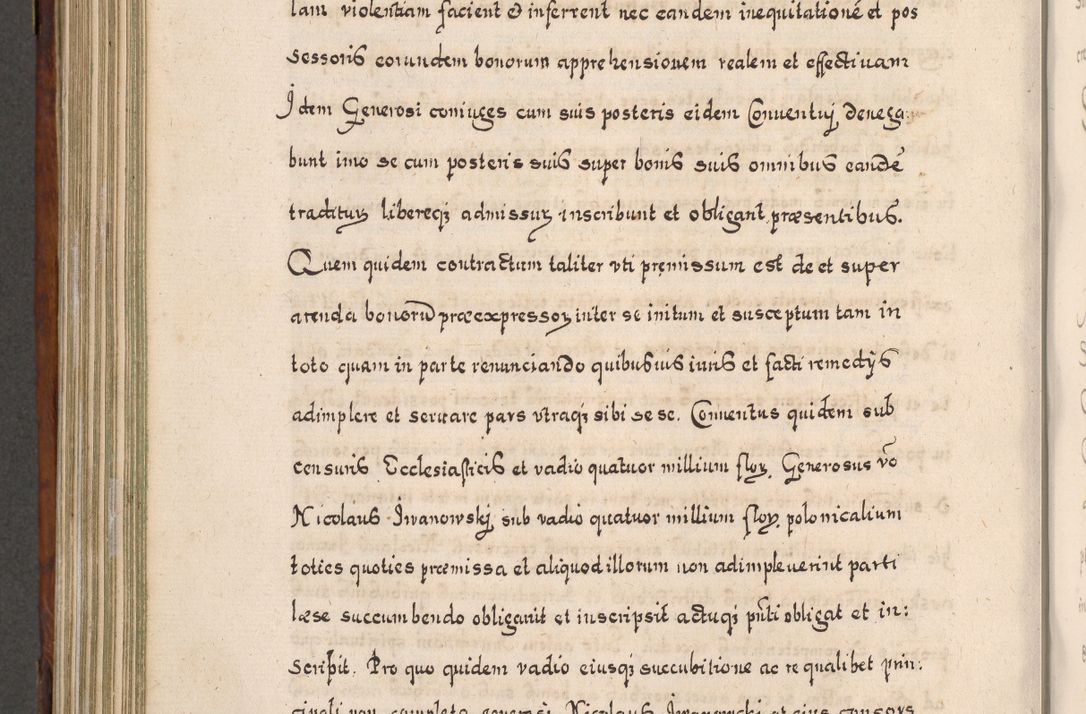 lam violentiam facient & inferrent nec eandem inequitationē et pos
sessoris eorundem bonorum apprehensionem realem et effectiuam
Idem Generosi coniuges cum suis posteris eidem Conuentuj denega:
bunt imo se cum posteris suis super bonis suis omnibus eandē
traditurȝ libereqȝ admissurȝ inscribunt et obligant præsentibus.
Quem quidem contractum taliter vti premissum est de et super
arenda bonorū præexpressorȝ inter se initum et susceptum tam in
toto quam in parte renunciando quibusuis iuris et facti remedijs
adimplere et seruare pars vtraqȝ sibi se se. Conuentus quidem sub
censuris Ecclesiasticis et vadio quatuor millium florȝ. Generosus vō
Nicolaus Iwanowskj sub vadio quatuor millium florȝ. polonicalium
toties quoties præmissa et aliquod illorum non adimpleuerint parti
læse succumbendo obligarit et inscripsit actuqȝ pn̄ti obligat et in:
scribit. Pro quo quidem vadio eiusqȝ succubitione ac re qualibet prin:
cipali non completa generosi Nicolaus Iwanowski et eius consors